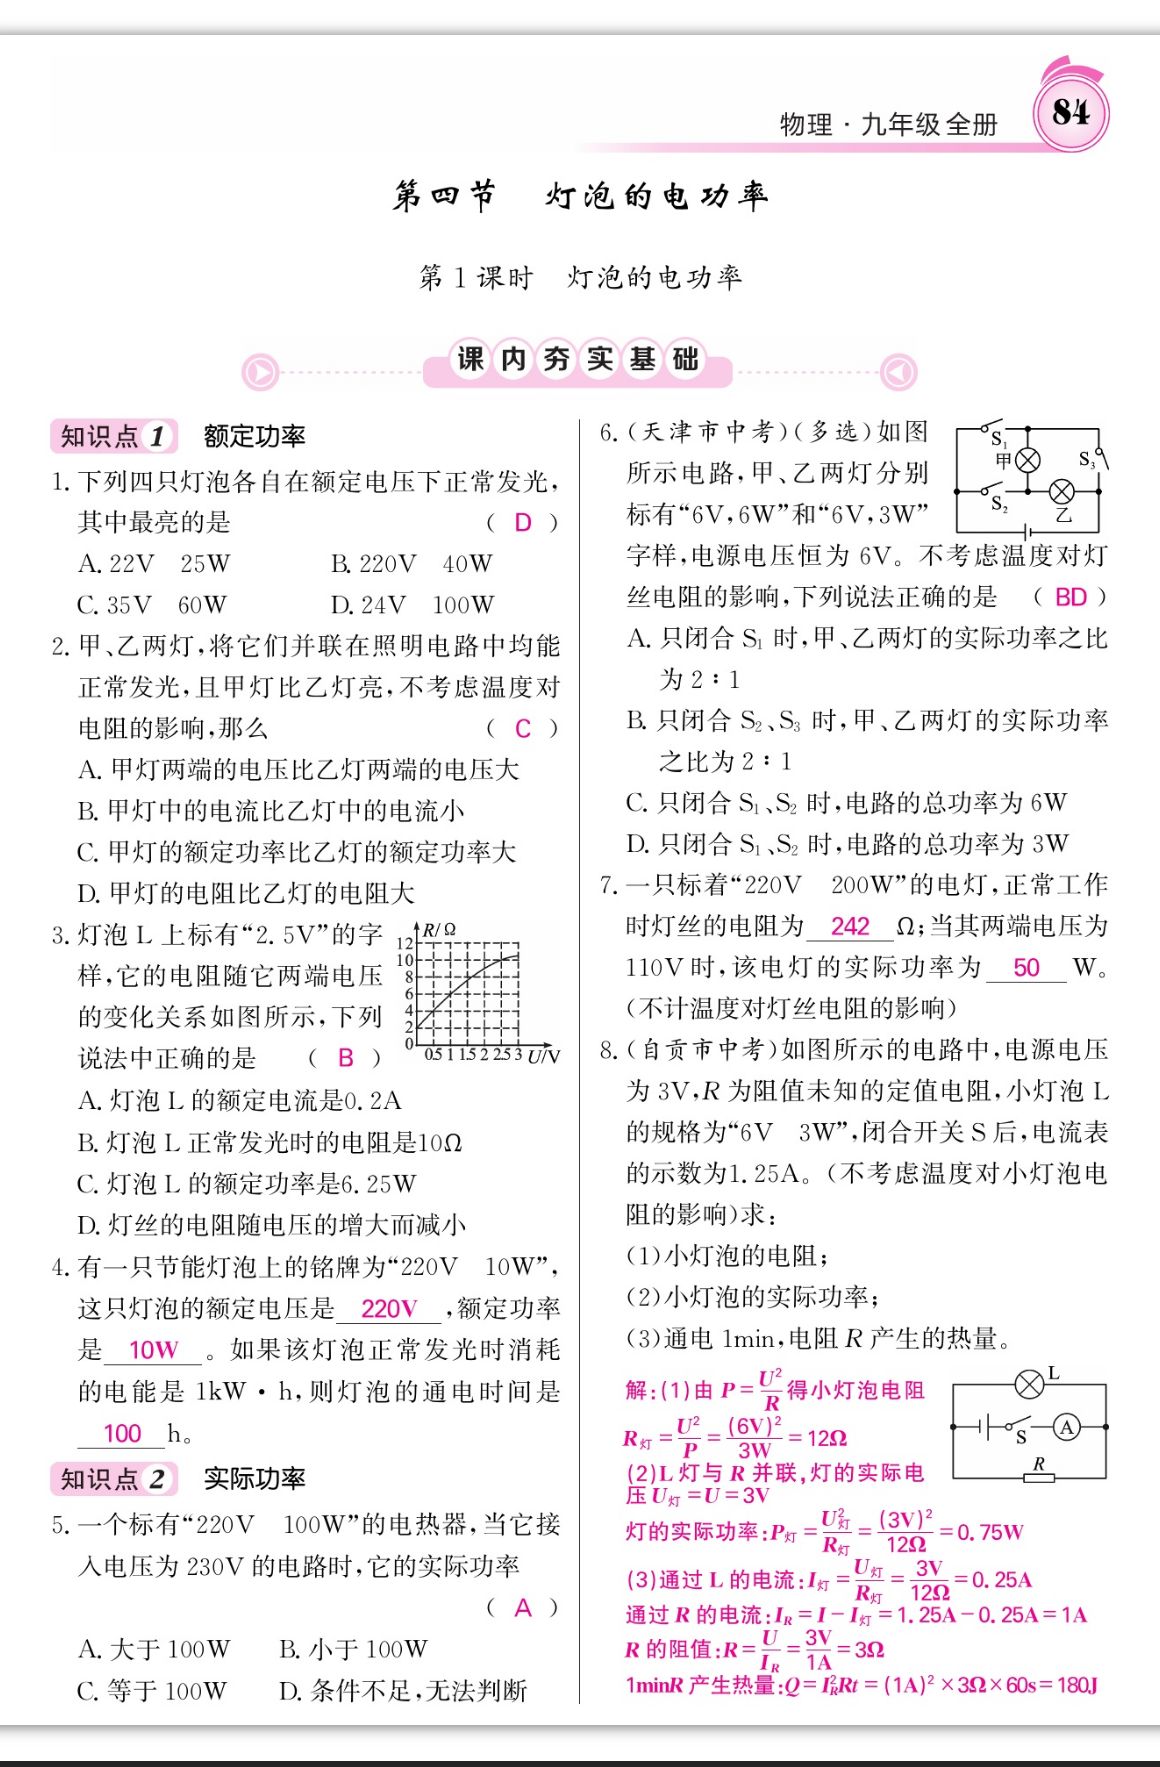 物理·九年级 全册
84
第四节　灯泡的电功率
第1课时　灯泡的电功率
课内夯实基础
知识点 1　额定功率
1. 下列四只灯泡各自在额定电压下正常发光，
其中最亮的是 （ D ）
A. 22V　25W　　B. 220V　40W
C. 35V　60W　　D. 24V　100W
2. 甲、乙两灯，将它们并联在照明电路中均能
正常发光，且甲灯比乙灯亮，不考虑温度对
电阻的影响，那么 （ C ）
A. 甲灯两端的电压比乙灯两端的电压大
B. 甲灯中的电流比乙灯中的电流小
C. 甲灯的额定功率比乙灯的额定功率大
D. 甲灯的电阻比乙灯的电阻大
3. 灯泡 L 上标有“2.5V”的字
样，它的电阻随它两端电压
的变化关系如图所示，下列
说法中正确的是 （ B ）
R/Ω
12
10
8
6
4
2
0
0.5 1 1.5 2 2.5 3 U/V
A. 灯泡 L 的额定电流是0.2A
B. 灯泡 L 正常发光时的电阻是10Ω
C. 灯泡 L 的额定功率是6.25W
D. 灯丝的电阻随电压的增大而减小
4. 有一只节能灯泡上的铭牌为“220V　10W”，
这只灯泡的额定电压是 220V ，额定功率
是 10W 。如果该灯泡正常发光时消耗
的电能是 1kW·h，则灯泡的通电时间是
100 h。
知识点 2　实际功率
5. 一个标有“220V　100W”的电热器，当它接
入电压为 230V 的电路时，它的实际功率
（ A ）
A. 大于 100W　　B. 小于 100W
C. 等于 100W　　D. 条件不足，无法判断
6. （天津市中考）（多选）如图
所示电路，甲、乙两灯分别
标有“6V，6W”和“6V，3W”
字样，电源电压恒为 6V。不考虑温度对灯
丝电阻的影响，下列说法正确的是 （ BD ）
S₁
甲
S₃
S₂
乙
A. 只闭合 S₁ 时，甲、乙两灯的实际功率之比
为 2∶1
B. 只闭合 S₂、S₃ 时，甲、乙两灯的实际功率
之比为 2∶1
C. 只闭合 S₁、S₂ 时，电路的总功率为 6W
D. 只闭合 S₁、S₂ 时，电路的总功率为 3W
7. 一只标着“220V　200W”的电灯，正常工作
时灯丝的电阻为 242 Ω；当其两端电压为
110V 时，该电灯的实际功率为 50 W。
（不计温度对灯丝电阻的影响）
8. （自贡市中考）如图所示的电路中，电源电压
为 3V，R 为阻值未知的定值电阻，小灯泡 L
的规格为“6V　3W”，闭合开关 S 后，电流表
的示数为1.25A。（不考虑温度对小灯泡电
阻的影响）求：
（1）小灯泡的电阻；
（2）小灯泡的实际功率；
（3）通电 1min，电阻 R 产生的热量。
L
S
A
R
解：(1)由 P=U²/R 得小灯泡电阻
R灯=U²/P=(6V)²/3W=12Ω
(2)L 灯与 R 并联，灯的实际电
压 U灯=U=3V
灯的实际功率：P灯=U²灯/R灯=(3V)²/12Ω=0.75W
(3)通过 L 的电流：I灯=U灯/R灯=3V/12Ω=0.25A
通过 R 的电流：I_R=I−I灯=1.25A−0.25A=1A
R 的阻值：R=U/I_R=3V/1A=3Ω
1minR 产生热量：Q=I²_R Rt=(1A)²×3Ω×60s=180J